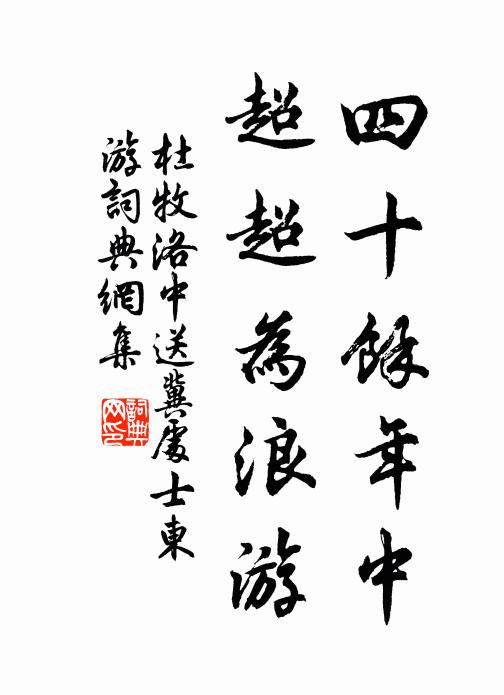 四十餘年中
超超為浪游
杜牧洛中送冀處士東
游詞典網集
詞典网印